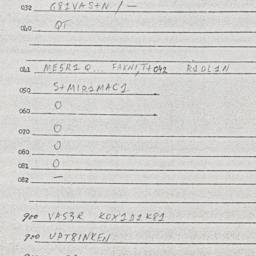 032 G81VAS+N / —
040 QT
041 ME5R1Q... FAKNI,T+042 R1DL1N
050 S+MIR1MAC1
060 O
070 O
080 O
081 O
082 —
900 VAS3R KOX1D1K81
900 UPT8INKEN